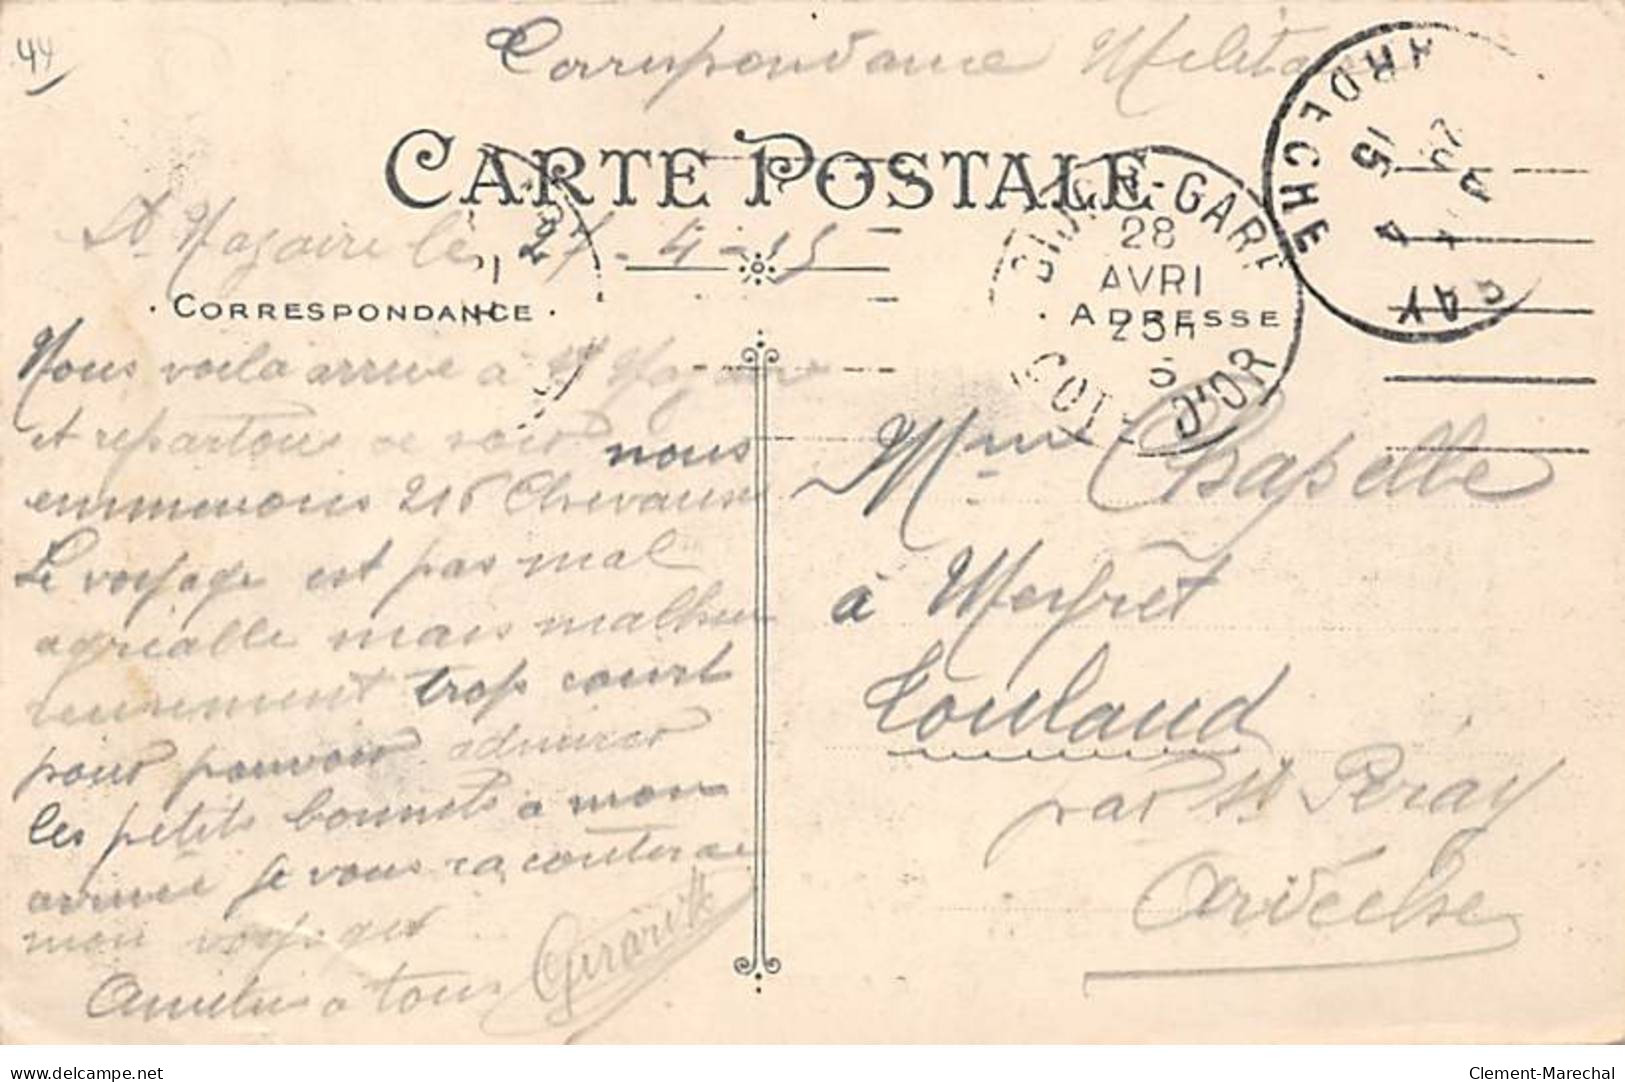 44
Correspondance Milita
CARTE POSTALE
St Nazaire le 27-4-15
CORRESPONDANCE
ADRESSE
Nous voila arrivé à St Nazaire
et repartons ce soir nous
emmenons 216 Chevaux
Le voyage est pas mal
agréable mais malheu
reusement trop court
pour pouvoir admirer
les petits bonnets a mon
arrivée je vous raconterai
mon voyage
Amitiés a tous
DIJON-GARE
28
AVRI
COTE D'OR
ARDECHE
15
4
Mme Chapelle
à Meyret
Toulaud
par St Peray
Ardéche
Clement-Marechal